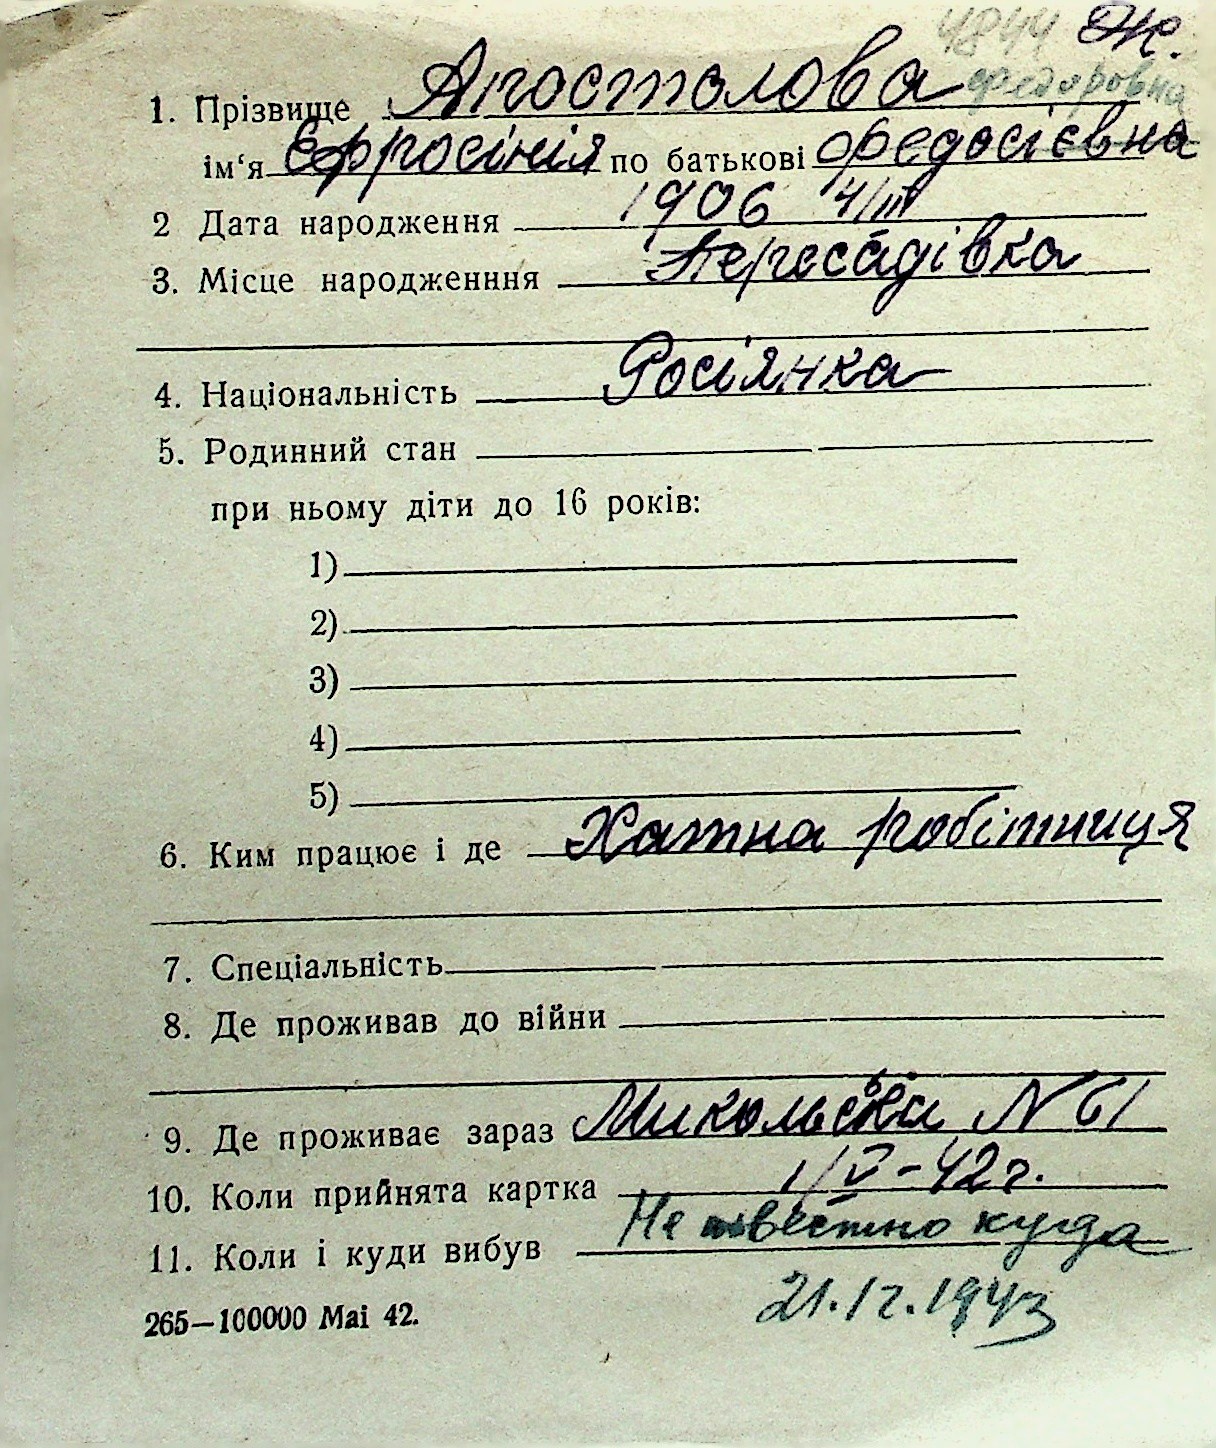 4844 Ж.
1. Прізвище Апостолова Федоровна
ім‘я Єфросінія по батькові Федосієвна
2 Дата народження 1906 4/III
3. Місце народженння Пересадівка
4. Національність Росіянка
5. Родинний стан
при ньому діти до 16 років:
1)
2)
3)
4)
5)
6. Ким працює і де Хатна робітниця
7. Спеціальність
8. Де проживав до війни
9. Де проживає зараз Микольська N 61
10. Коли прийнята картка 1/V-42 г.
11. Коли і куди вибув Не известно куда
265—100000 Mai 42. 21.12.1943